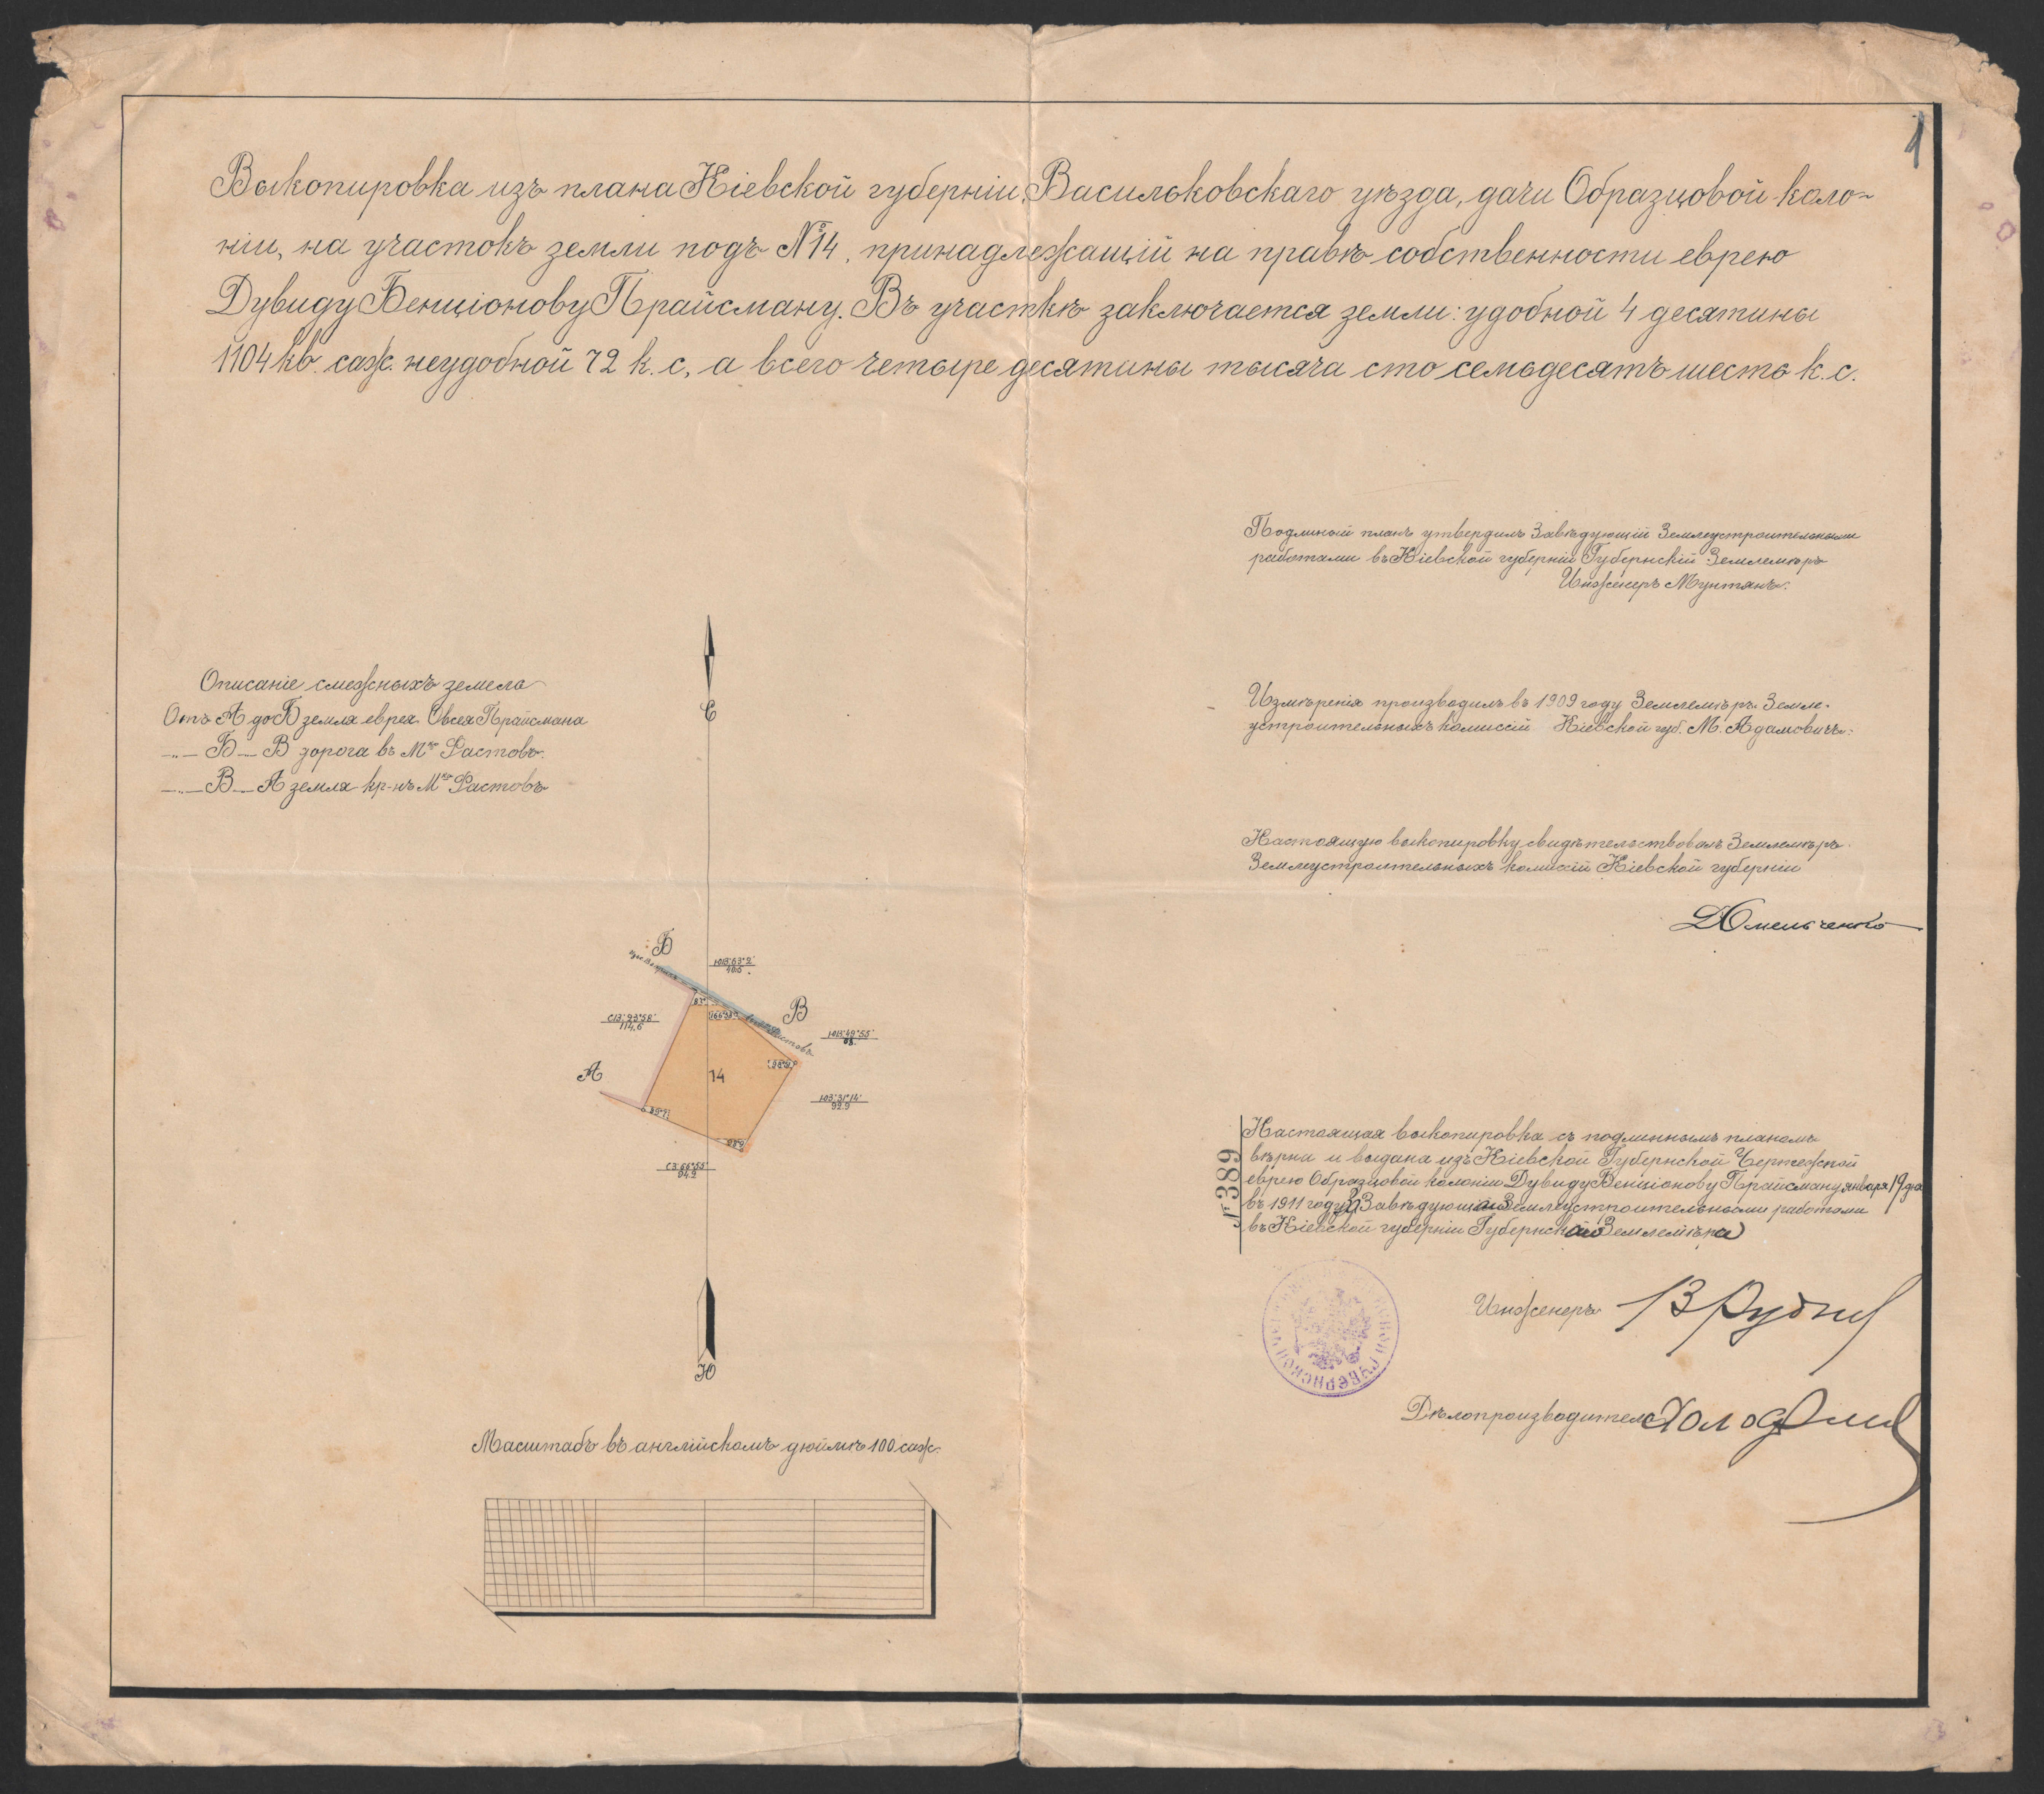 1
Выкопировка изъ плана Кіевской губерніи, Васильковскаго уѣзда, дачи Образцовой коло-
ніи, на участокъ земли подъ №14, принадлежащій на правѣ собственности еврею
Дувиду Бенціонову Прайсману. Въ участкѣ заключается земли: удобной 4 десятины
1104 кв. саж. неудобной 72 к. с., а всего четыре десятины тысяча сто семьдесятъ шесть к. с.
Подлиный планъ утвердилъ Завѣдующій Землеустроительными
работами въ Кіевской губерніи Губернскій Землемѣръ
Инженеръ Мунтянъ.
Описаніе смежныхъ земель
Отъ А до Б земля еврея Овсея Прайсмана
—„— Б — В дорога въ Мко Фастовъ.
—„— В — А земля кр-нъ Мка Фастовъ
С
Измѣренія производилъ въ 1909 году Землемѣръ Земле-
устроительныхъ комиссій Кіевской губ. М. Адамовичъ.
Настоящую выкопировку свидѣтельствовалъ Землемѣръ
Землеустроительныхъ комиссій Кіевской губерніи
Омельченко
Б
ЮВ:63°2'
40.5
83°
166°53'
В
Фастовъ
СВ:23°58'
114.6
ЮВ:49°55'
А
14
98°
ЮЗ:31°14'
92.9
89°
СЗ:66°55'
94.2
№ 389
Настоящая выкопировка съ подлиннымъ планомъ
вѣрна и выдана изъ Кіевской Губернской Чертежной
еврею Образцовой колоніи Дувиду Бенціонову Прайсману января 19 дня
въ 1911 году. За Завѣдующаго Землеустроительными работами
въ Кіевской губерніи Губернскаго Землемѣра
Инженеръ
Дѣлопроизводитель
Ю
Масштабъ въ англійскомъ дюймѣ 100 саж.